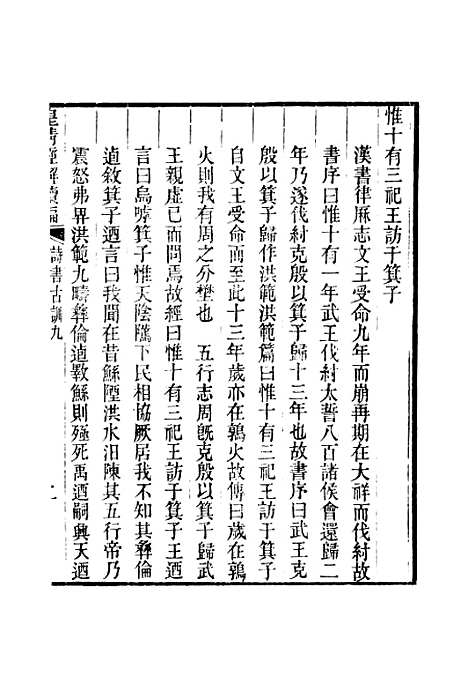 惟十有三祀王訪于箕子
漢書律厤志文王受命九年而崩再期在大祥而伐紂故
書序曰惟十有一年武王伐紂太誓八百諸侯會還歸二
年乃遂伐紂克殷以箕子歸十三年也故書序曰武王克
殷以箕子歸作洪範洪範篇曰惟十有三祀王訪于箕子
自文王受命而至此十三年歲亦在鶉火故傳曰歲在鶉
火則我有周之分壄也　五行志周旣克殷以箕子歸武
王親虛己而問焉故經曰惟十有三祀王訪于箕子王迺
言曰烏嘑箕子惟天陰騭下民相協厥居我不知其彝倫
逌敘箕子迺言曰我聞在昔鯀陻洪水汨陳其五行帝乃
震怒弗畀洪範九疇彝倫逌斁鯀則殛死禹迺嗣興天迺
皇淸經解續編
詩書古訓九